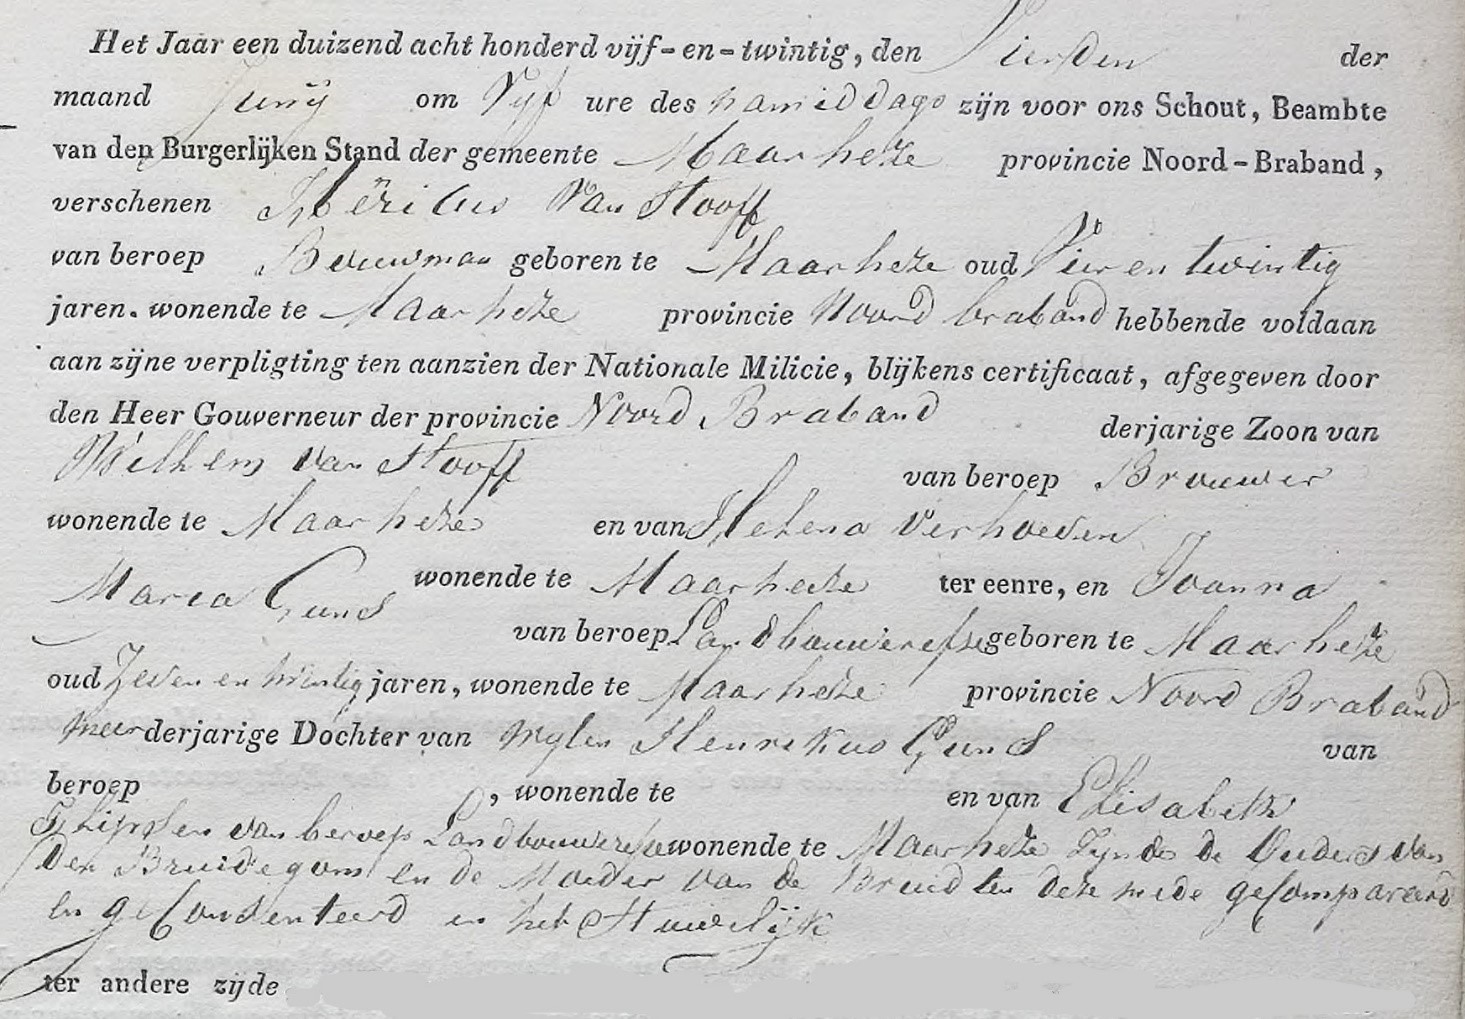 Het Jaar een duizend acht honderd vijf-en-twintig, den Vierden der
maand Junij om Vijf ure des namiddags zijn voor ons Schout, Beambte
van den Burgerlijken Stand der gemeente Maarheze provincie Noord-Braband,
verschenen van Hooff
van beroep Bouwman geboren te Maarheze oud Vier en twintig
jaren. wonende te Maarheze provincie Noord braband hebbende voldaan
aan zijne verpligting ten aanzien der Nationale Milicie, blijkens certificaat, afgegeven door
den Heer Gouverneur der provincie Noord Braband derjarige Zoon van
Wilhem van Hooff van beroep Brouwer
wonende te Maarheze en van Helena Verhoeven
wonende te Maarheze ter eenre, en Joanna
Maria Cuns van beroep Landbouweresse geboren te Maarheze
oud Zeven en twintig jaren, wonende te Maarheze provincie Noord Braband
meerderjarige Dochter van Wylen Henrikus Cuns van
beroep , wonende te en van Elisabeth
van beroep Landbouweresse wonende te Maarheze Zynde de Ouders van
den Bruidegom en de Moeder van de Bruid ten deze mede gecompareerd
en geconsenteerd in het Huwelijk
ter andere zijde